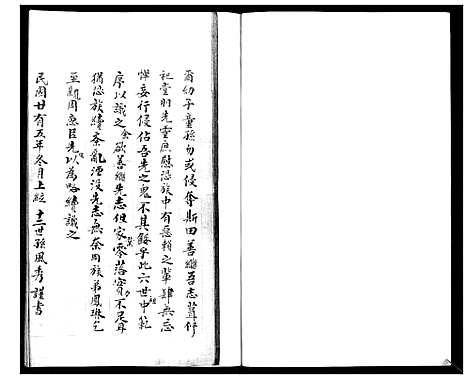 爾幼子童孫勿或侵奪斯田善繼吾志葺修
祀堂羽先靈庶慰恐族中有無賴之輩肆無忘
憚妄行侵佔吾先之鬼不其餒乎此六世祖中範
序以識之余欲善繼先志但家業零落實力不足耳
猶恐族續紊亂湮没先志無奈同族弟鳳琳乞
至親周魚臣先以為略續識之
民國廿有五年冬月上浣十二世孫鳳秀謹書